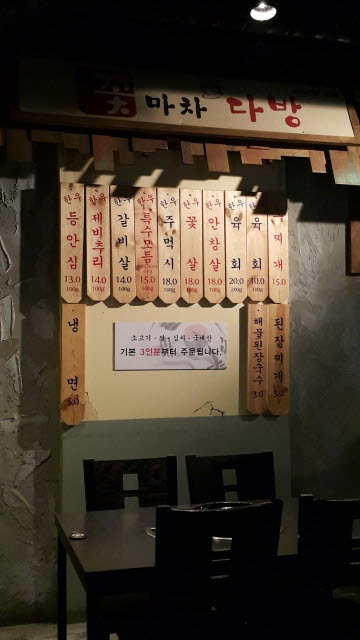 꽃 마차 다방
한우 등안심 13.0 100g
한우 제비추리 14.0 100g
한우 갈비살 14.0 100g
한우 특수모듬 15.0 100g
한우 주먹시 18.0 100g
한우 꽃살 18.0 100g
한우 안창살 18.0 100g
한우 육회 20.0 200g
한우 육회 10.0 100g
찌개 15.0
냉면 5.0
소고기 · 쌀 · 김치 - 국내산
기본 3인분부터 주문됩니다.
해물된장국수 3.0
된장찌개 5.0